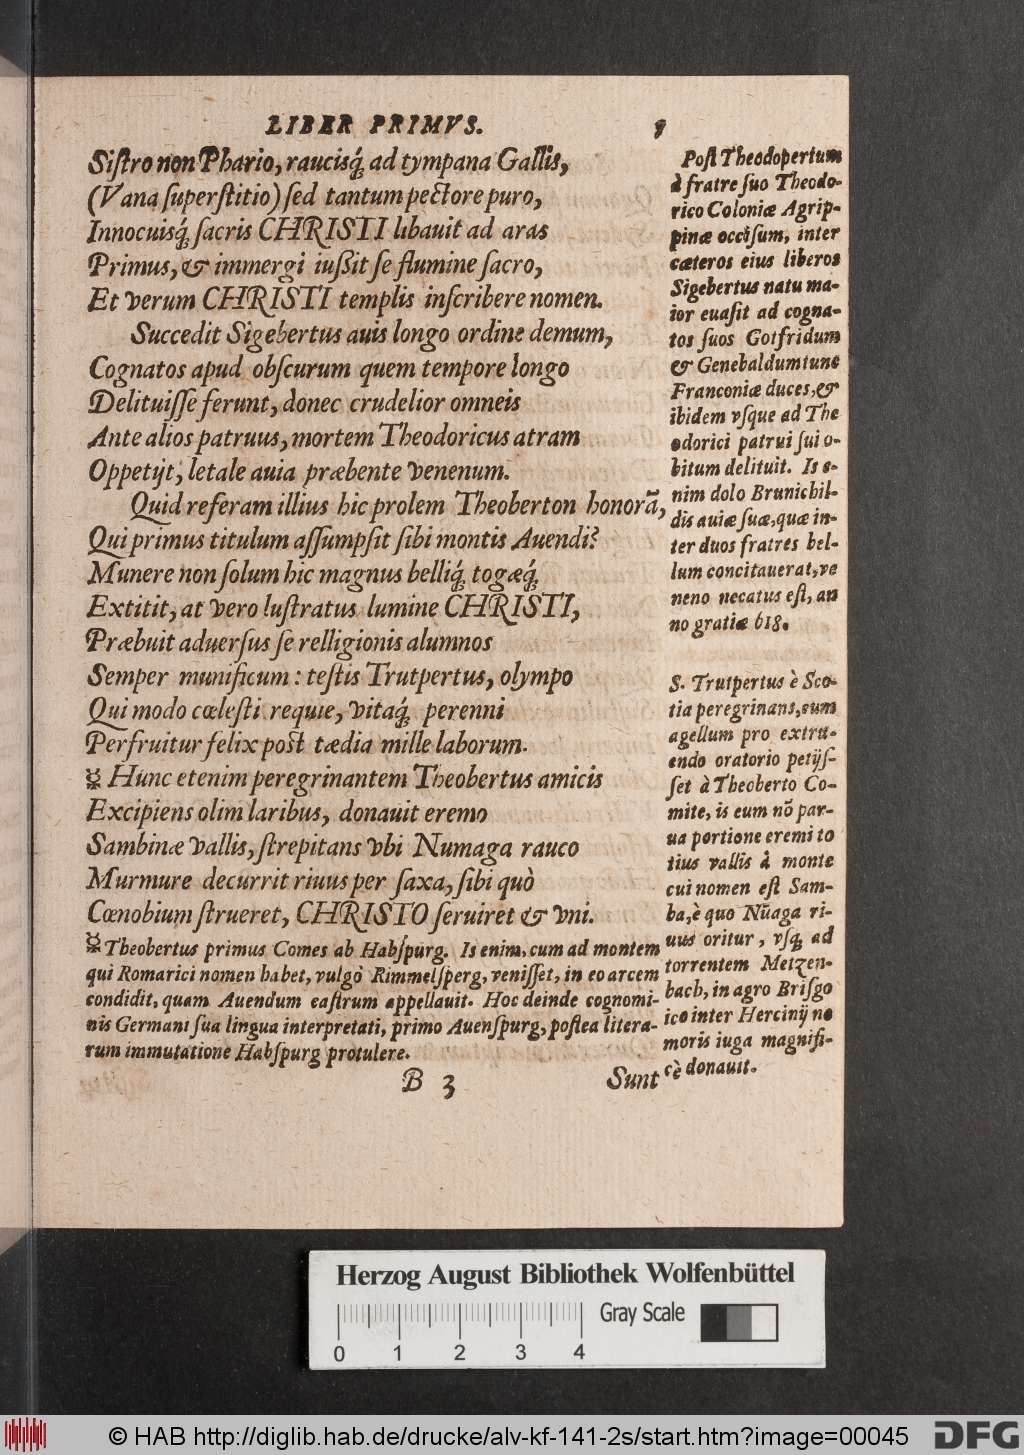 LIBER PRIMVS.
Siſtro non Phario, raucisq́; ad tympana Gallis,
(Vana ſuperſtitio) ſed tantum pectore puro,
Innocuisq́; ſacris CHRISTI libauit ad aras
Primus, & immergi iußit ſe flumine ſacro,
Et verum CHRISTI templis inſcribere nomen.
Succedit Sigebertus auis longo ordine demum,
Cognatos apud obſcurum quem tempore longo
Delituiſſe ferunt, donec crudelior omneis
Ante alios patruus, mortem Theodoricus atram
Oppetijt, letale auia præbente venenum.
Quid referam illius hic prolem Theoberton honorā,
Qui primus titulum aſſumpſit ſibi montis Auendi?
Munere non ſolum hic magnus belliq́; togæq́;
Extitit, at vero luſtratus lumine CHRISTI,
Præbuit aduerſus ſe relligionis alumnos
Semper munificum: teſtis Trutpertus, olympo
Qui modo cœleſti requie, vitaq́; perenni
Perfruitur felix poſt tædia mille laborum.
☿ Hunc etenim peregrinantem Theobertus amicis
Excipiens olim laribus, donauit eremo
Sambinæ vallis, ſtrepitans vbi Numaga rauco
Murmure decurrit riuus per ſaxa, ſibi quò
Cœnobium ſtrueret, CHRISTO ſeruiret & vni.
☿ Theobertus primus Comes ab Habſpurg. Is enim, cum ad montem
qui Romarici nomen habet, vulgò Rimmelſperg, veniſſet, in eo arcem
condidit, quam Auendum caſtrum appellauit. Hoc deinde cognomi-
nis Germani ſua lingua interpretati, primo Auenſpurg, poſtea litera-
rum immutatione Habſpurg protulere.
B 3
Sunt
Poſt Theodopertum
à fratre ſuo Theodo-
rico Coloniæ Agrip-
pinæ occiſum, inter
cæteros eius liberos
Sigebertus natu ma-
ior euaſit ad cogna-
tos ſuos Gotfridum
& Genebaldum tunc
Franconiæ duces, &
ibidem vſque ad The
odorici patrui ſui o-
bitum delituit. Is e-
nim dolo Brunichil-
dis auiæ ſuæ, quæ in-
ter duos fratres bel-
lum concitauerat, ve
neno necatus eſt, an
no gratiæ 618.
S. Trutpertus è Sco-
tia peregrinans, cum
agellum pro extru-
endo oratorio petijſ-
ſet à Theoberto Co-
mite, is eum nō par-
ua portione eremi to
tius vallis à monte
cui nomen eſt Sam-
ba, è quo Nūaga ri-
uus oritur, vſq; ad
torrentem Metzen-
bach, in agro Briſgo
ico inter Hercinij ne
moris iuga magnifi-
cè donauit.
Herzog August Bibliothek Wolfenbüttel
Gray Scale
0 1 2 3 4
© HAB http://diglib.hab.de/drucke/alv-kf-141-2s/start.htm?image=00045
DFG